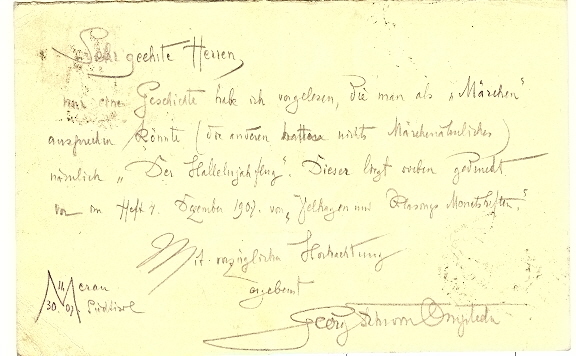 Sehr geehrte Herren,
nur eine Geschichte habe ich vorgelesen, die man als „Märchen"
ansprechen könnte (die anderen hatten nichts Märchenähnliches)
nämlich „Der Hallelujahflug". Dieser liegt soeben gedruckt
vor im Heft 4. Dezember 1907. von „Velhagen und Klasings Monatsheften."
Mit vorzüglicher Hochachtung
ergebenst
Georg Ompteda
Meran
30. 07. Südtirol